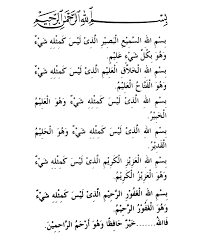 بِسْمِ اللهِ الرَّحْمٰنِ الرَّحِيْمِ
بِسْمِ اللهِ السَّمِيْعِ الْبَصِيْرِ الَّذِىْ لَيْسَ كَمِثْلِهٖ شَىْءٌ
وَهُوَ بِكُلِّ شَىْءٍ عَلِيْمٌ.
بِسْمِ اللهِ الْخَلَّاقِ الْعَلِيْمِ الَّذِىْ لَيْسَ كَمِثْلِهٖ شَىْءٌ
وَهُوَ الْفَتَّاحُ الْعَلِيْمُ.
بِسْمِ اللهِ الَّذِىْ لَيْسَ كَمِثْلِهٖ شَىْءٌ وَهُوَ الْعَلِيْمُ
الْخَبِيْرُ.
بِسْمِ اللهِ الَّذِىْ لَيْسَ كَمِثْلِهٖ شَىْءٌ وَهُوَ الْحَلِيْمُ
الْقَدِيْرُ.
بِسْمِ اللهِ الْعَزِيْزِ الْكَرِيْمِ الَّذِىْ لَيْسَ كَمِثْلِهٖ شَىْءٌ
وَهُوَ الْعَزِيْزُ الْكَرِيْمُ.
بِسْمِ اللهِ الْغَفُوْرِ الرَّحِيْمِ الَّذِىْ لَيْسَ كَمِثْلِهٖ شَىْءٌ
وَهُوَ الْغَفُوْرُ الرَّحِيْمُ
فَاللهُ......خَيْرٌ حَافِظًا وَهُوَ أَرْحَمُ الرَّاحِمِيْنَ.